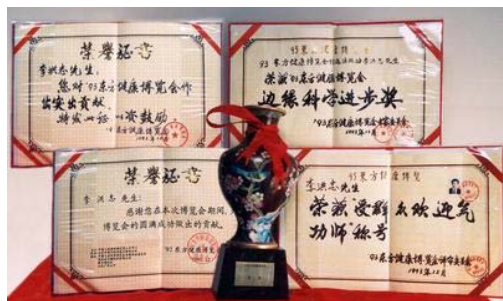 荣誉证书
李洪志先生:
您对'93东方健康博览会作
出突出贡献,
特发此证 以资鼓励
'93东方健康博览会
1993年12月
'93东方健康博览会
李洪志先生
荣获'93东方健康博览会
边缘科学进步奖
1993年12月
荣誉证书
李洪志先生:
感谢您在本次博览会期间,
博览会的圆满成功做出的贡献。
'93东方健康博览
李洪志先生
荣获"受群众欢迎气
功师"称号
'93东方健康博览会评审委员会
1993年12月